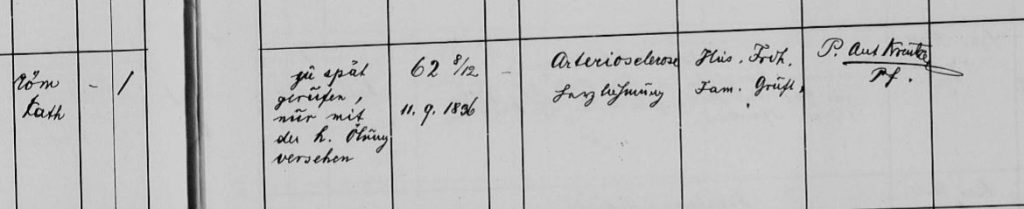 röm
Kath
- /
zu spät
gerufen,
nur mit
der h. Ölung
versehen
62 8/12
11. 9. 1836
-
Arteriosclerose
Herzlähmung
Hies. Frdh.
Fam. Gruft.
P. Ant
Pf.